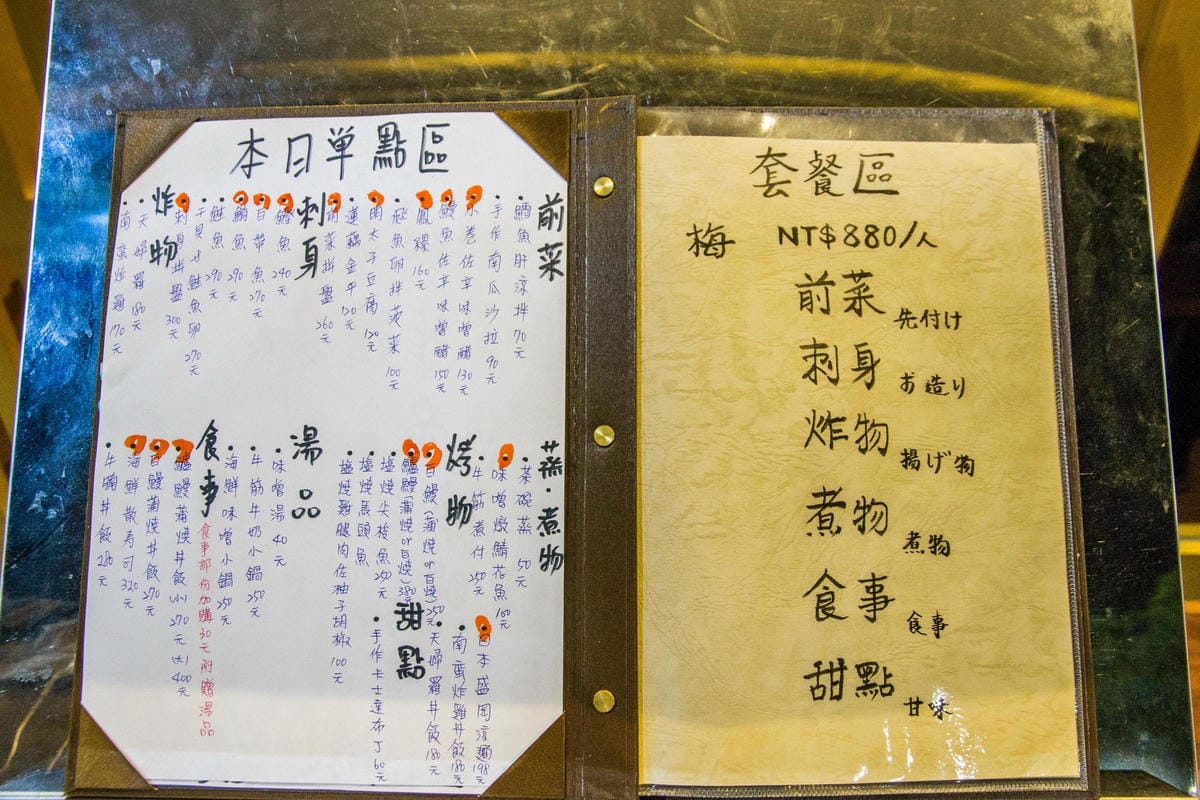 本日单點區
前菜
鱈魚肝涼拌70元
手作南瓜沙拉90元
水卷佐辛味噌醋130元
鰻魚佐辛味噌醋150元
鳳螺160元
飛魚卵拌菠菜100元
明太子豆腐120元
蓮藕金平120元
前菜拼盤260元
刺身
290元
白帶魚270元
鯛魚290元
鮭魚290元
干貝&鮭魚卵270元
刺身拼盤300元
炸物
天婦羅180元
南蠻炸雞170元
蒸·煮物
茶碗蒸50元
味噌燉鯖花魚160元
牛筋煮付250元
烤物
白鰻(蒲燒or白燒)250元
鱸鰻(蒲燒or白燒)380元
塩燒尖梭魚250元
塩燒馬頭魚
塩燒雞腿肉佐柚子胡椒100元
湯品
味噌湯40元
牛筋牛奶小鍋250元
海鮮味噌小鍋250元
食事
食事部份加購30元附贈湯品
鱸鰻蒲燒丼飯(小)270元(大)400元
白鰻蒲燒丼飯270元
海鮮散寿司320元
牛丼飯280元
日本盛岡涼麵198元
南蠻炸雞丼飯180元
天婦羅丼飯180元
甜點
手作卡士達布丁60元
套餐區
梅 NT$880/人
前菜 先付け
刺身 お造り
炸物 揚げ物
煮物 煮物
食事 食事
甜點 甘味